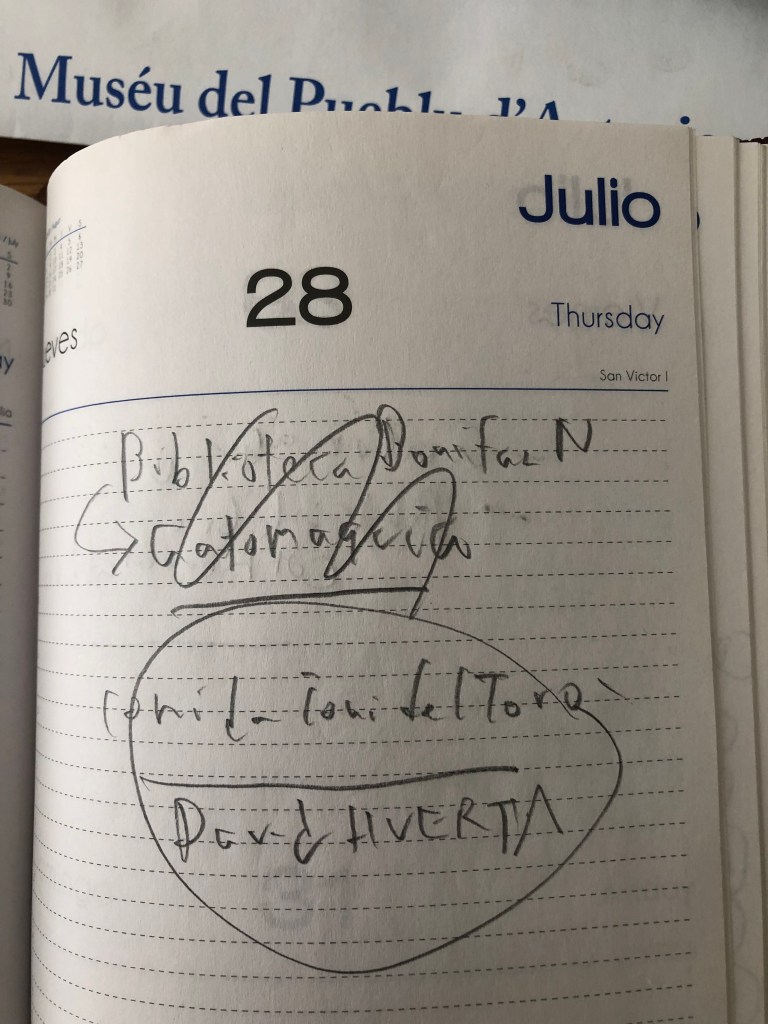 Muséu del Pueblu d'Asturies
Julio
28
Thursday
San Victor I
Biblioteca Bonifaz N
Gatomaquia
comida Toni del Toro
David HUERTA